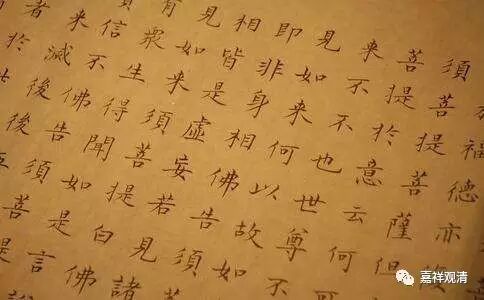 福德亦
須菩提菩薩但
菩提於意云何可
來不不也世尊不
見如來何以故如
即非身相佛告須
相皆是虛妄若見諸
見如來須菩提白佛
有眾生得聞如是言
信不佛告須菩提
來滅後後
者於
嘉祥观清